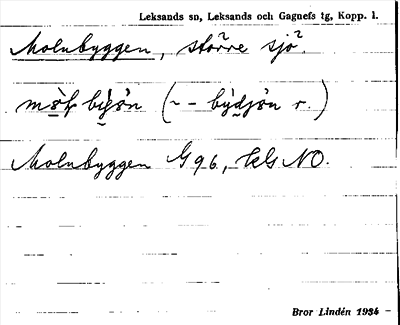 Leksands sn, Leksands och Gagnefs tg, Kopp. l.
Molnbyggen, större sjö.
(~ – r.)
Molnbyggen G 96, NO.
Bror Lindén 1934 –